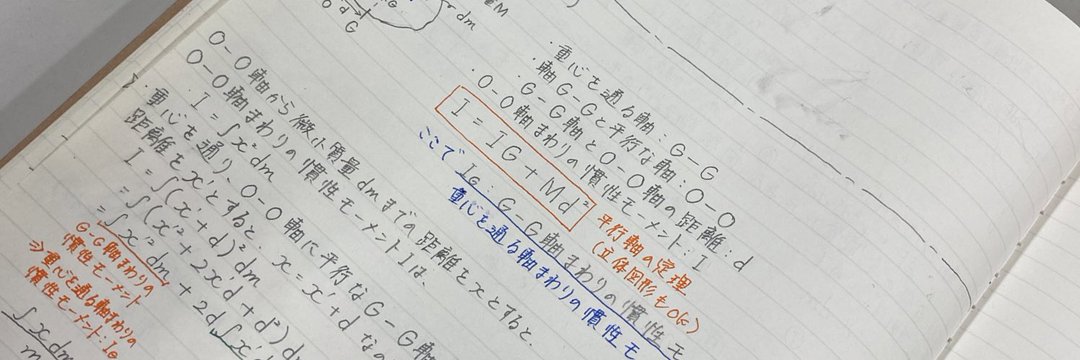 d G
dm
量M
O-O軸から微小質量dmまでの距離をxとすると、
O-O軸まわりの慣性モーメントIは、
I = ∫x²dm
・重心を通り、O-O軸に平行なG-G軸
距離をx'とすると、x = x' + d なの
I = ∫(x'+d)² dm
= ∫(x'² + 2x'd + d²)d
= ∫x'² dm + 2d∫x'
G-G軸まわりの
慣性モーメント
⇒重心を通る軸まわりの
慣性モーメント:IG
∫x dm
m
・重心を通る軸:G-G
・軸G-Gと平行な軸:O-O
・G-G軸とO-O軸の距離:d
・O-O軸まわりの慣性モーメント:I
I = IG + Md²
平行軸の定理
(立体図形もOK)
ここで IG:G-G軸まわりの慣性モ
重心を通る軸まわりの慣性モ